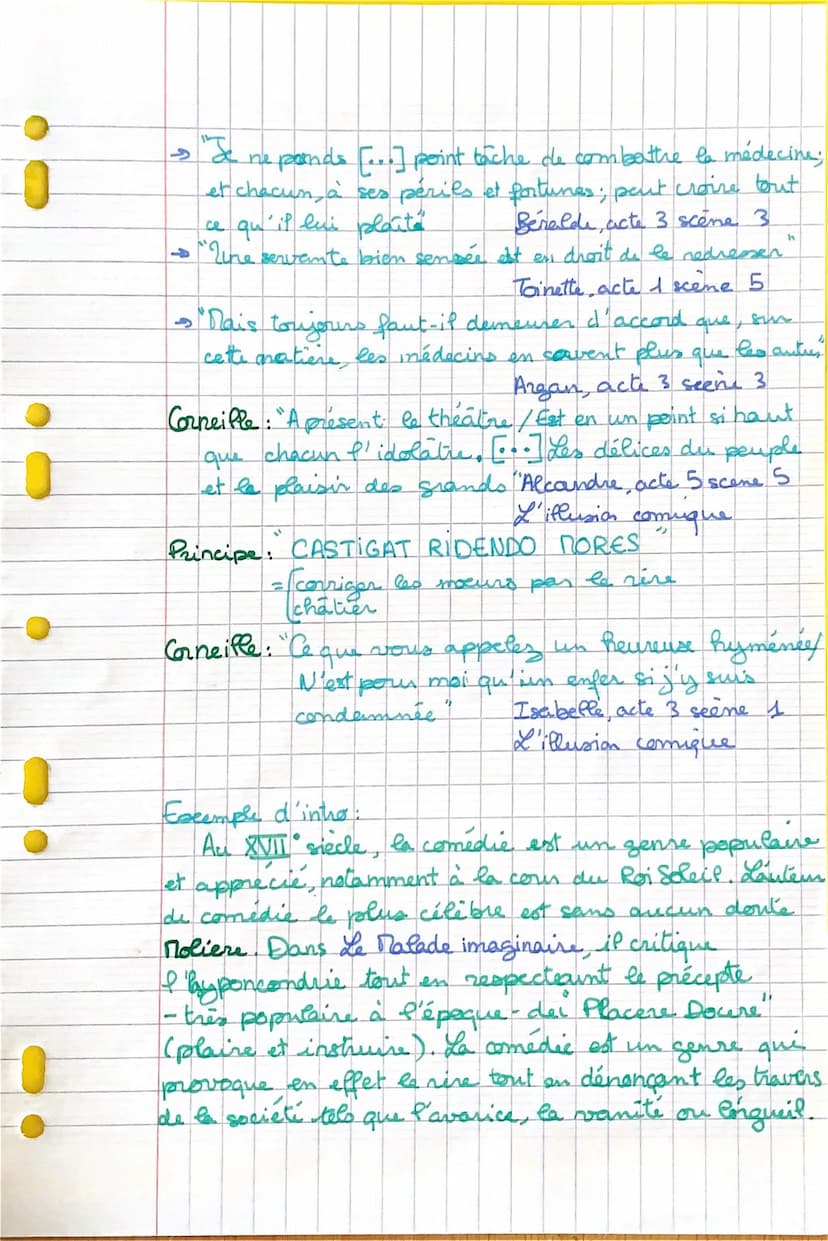 → "Je ne prends [...] point tâche de combattre la médecine;
et chacun, à ses périls et fortunes; peut croire tout
ce qu'il lui plaîtâ" Béralde, acte 3 scène 3
→ "Une servante bien sensée est en droit de le redresser"
Toinette, acte 1 scène 5
→ "Mais toujours faut-il demeurer d'accord que, sur
cette matière, les médecins en savent plus que les autres"
Argan, acte 3 scène 3
Corneille : "A présent le théâtre / Est en un point si haut
que chacun l'idolâtre. [...] Les délices du peuple
et le plaisir des grands" Alcandre, acte 5 scene 5
L'illusion comique
Principe : "CASTIGAT RIDENDO MORES"
= corriger les moeurs par le rire
châtier
Corneille : "Ce que vous appelez un heureuse hyménée/
N'est pour moi qu'un enfer si j'y suis
condamnée" Isabelle, acte 3 scène 1
L'illusion comique
Exemple d'intro :
Au XVII° siècle, la comédie est un genre populaire
et apprécié, notamment à la cour du Roi Soleil. L'auteur
de comédie le plus célèbre est sans aucun doute
Molière. Dans Le Malade imaginaire, il critique
l'hyponcondrie tout en respecteant le précepte
- très populaire à l'époque - dei "Placere Docere"
(plaire et instruire). La comédie est un genre qui
provoque en effet le rire tout en dénonçant les travers
de la société tels que l'avarice, la vanité ou l'orgueil.